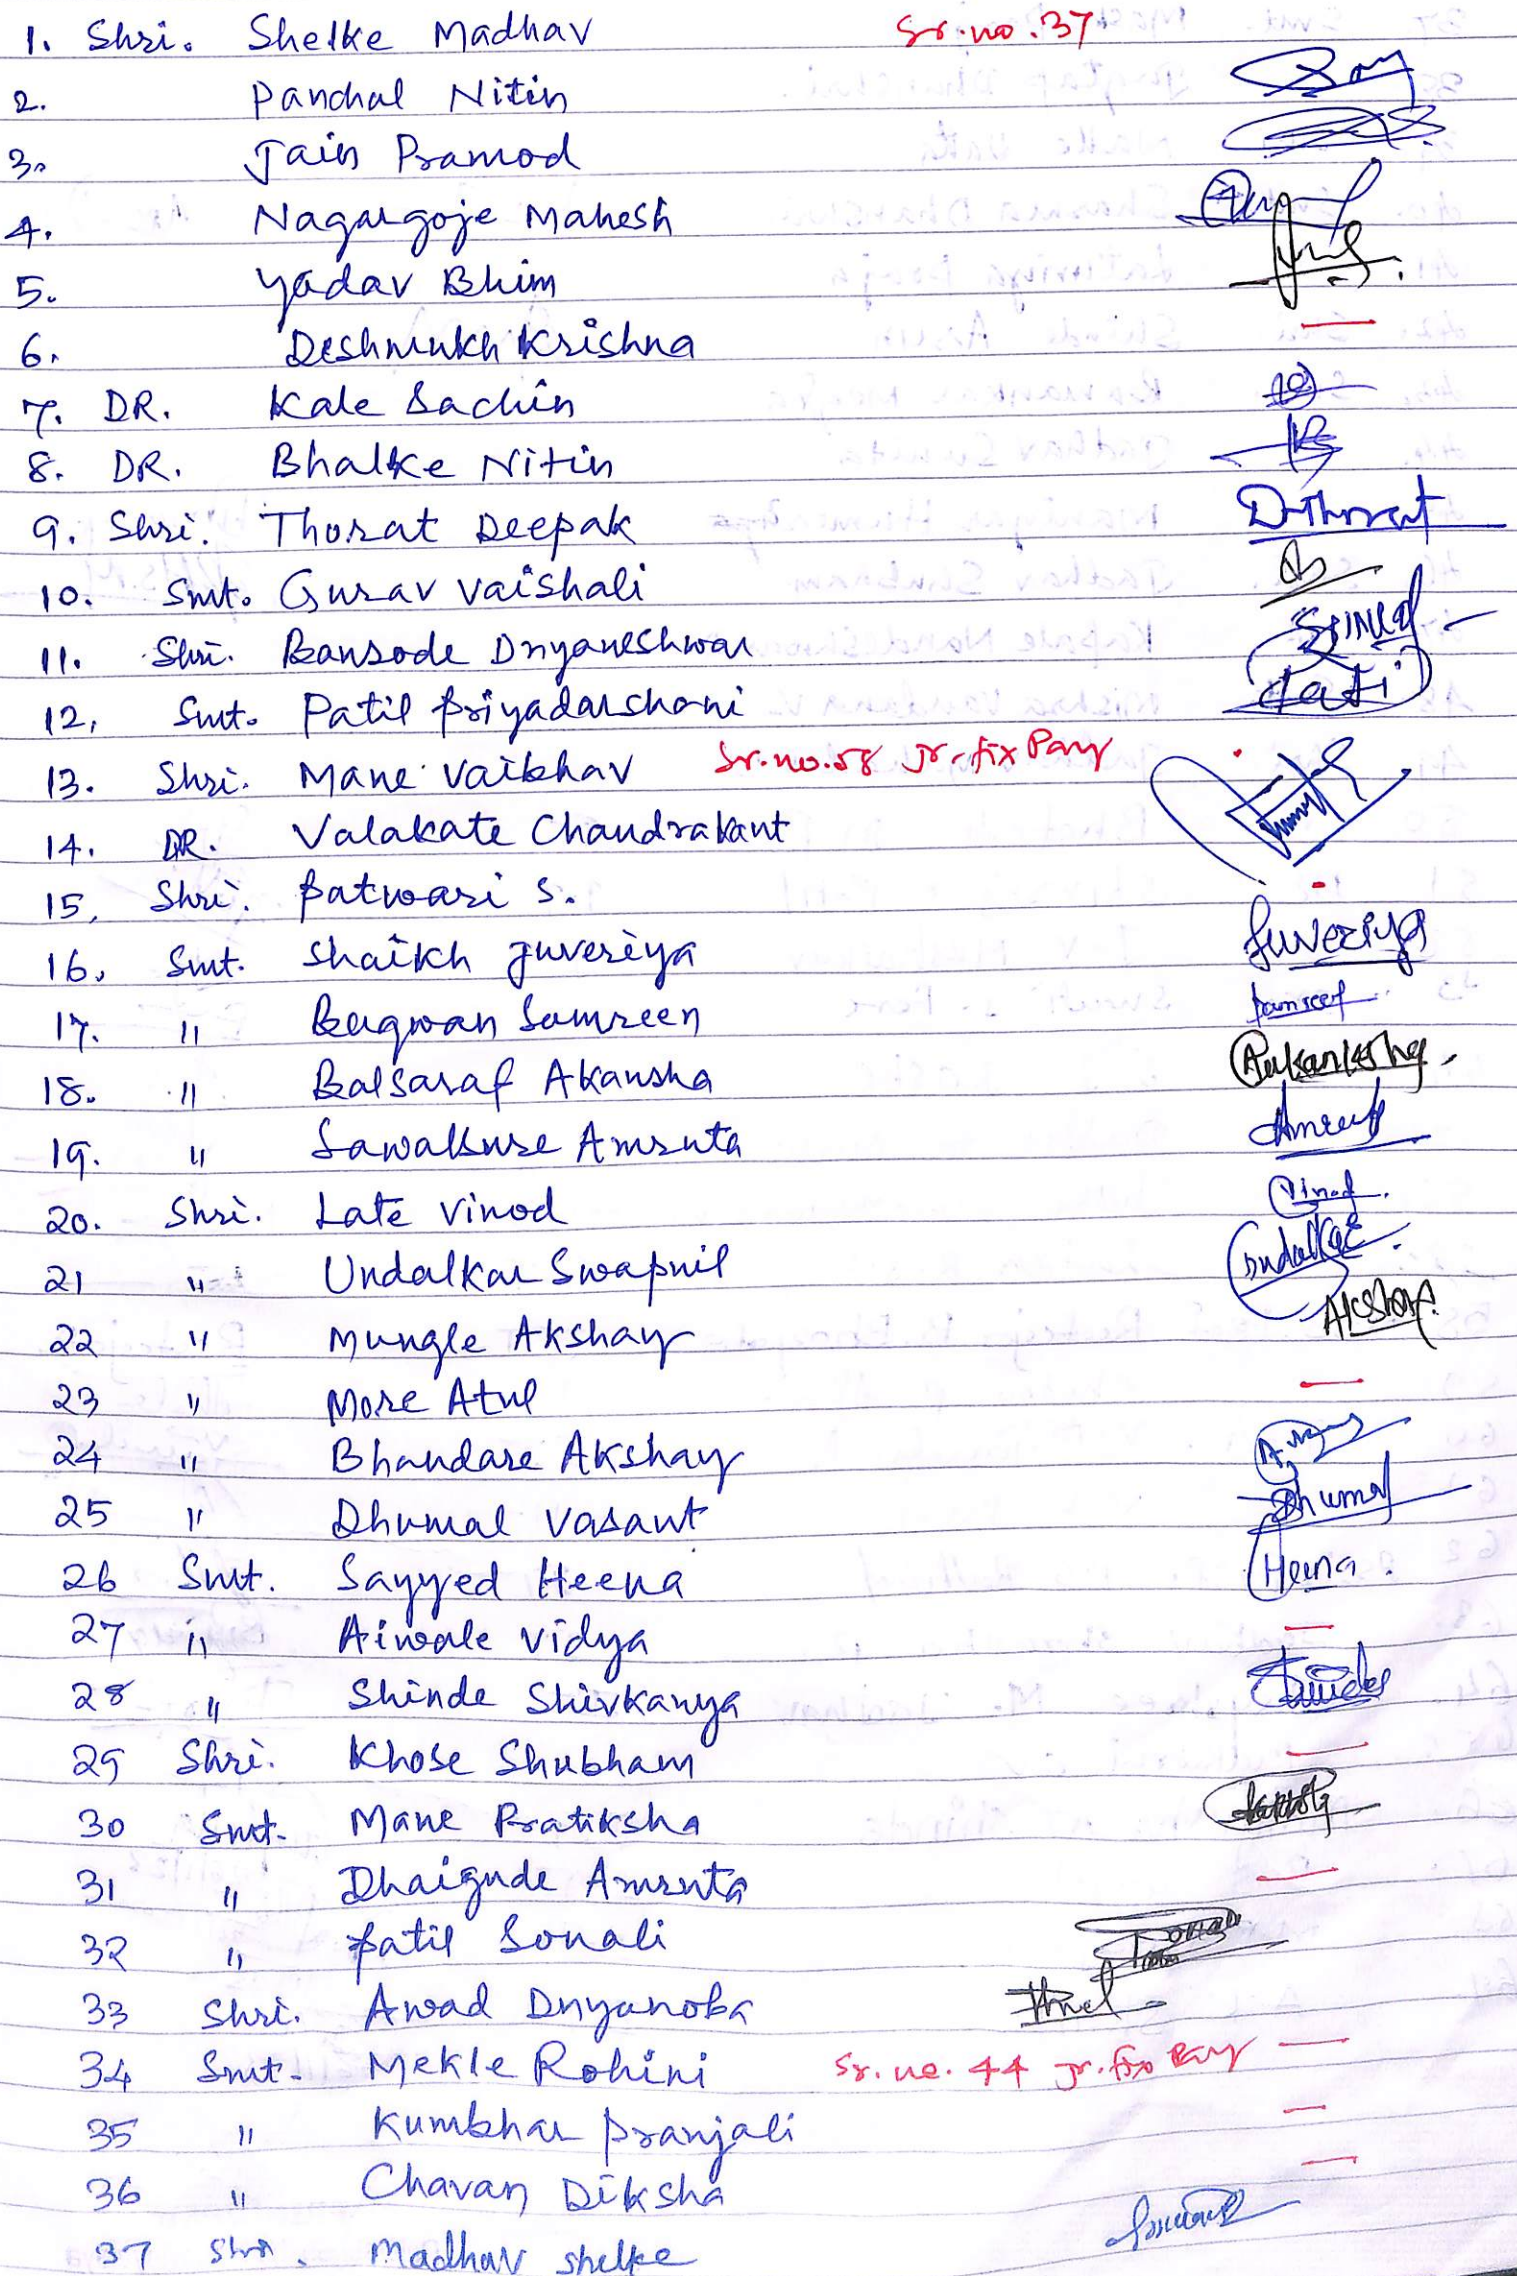 1. Shri. Shelke Madhav Sr.no.37
2. Panchal Nitin
3. Jain Pramod
4. Nagargoje Mahesh
5. Yadav Bhim
6. Deshmukh Krishna —
7. DR. Kale Sachin
8. DR. Bhalke Nitin
9. Shri. Thorat Deepak D.Thorat
10. Smt. Gurav Vaishali
11. Shri. Bansode Dnyaneshwar
12. Smt. Patil Priyadarshani
13. Shri. Mane Vaibhav Sr.no.58 Jr.fix Pay
14. DR. Valakate Chandrakant
15. Shri. Patwari S.
16. Smt. Shaikh Juveriya Juveriya
17. " Bagwan Samreen
18. " Balsaraf Akansha Aakanksha
19. " Sawalsure Amruta
20. Shri. Late Vinod Vinod
21 " Undalkar Swapnil Undalkar
22 " Mungle Akshay Akshay
23 " More Atul —
24 " Bhandare Akshay
25 " Dhumal Vasant Dhumal
26 Smt. Sayyed Heena Heena.
27 " Aiwale Vidya —
28 " Shinde Shivkanya
29 Shri. Khose Shubham —
30 Smt. Mane Pratiksha
31 " Dhaigude Amruta —
32 " Patil Sonali
33 Shri. Awad Dnyanoba
34 Smt. Mekle Rohini Sr.no.44 Jr.fix Pay —
35 " Kumbhar Pranjali —
36 " Chavan Diksha —
37 Shri. Madhav Shelke